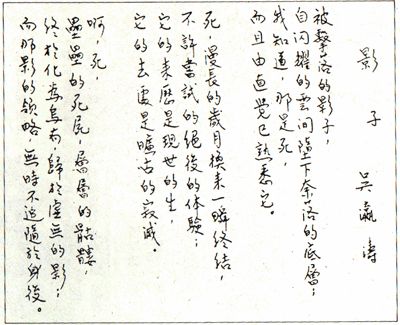 影子　吳瀛濤
被擊落的影子，
自閃耀的雲間墮下奈落的底層；
我知道，那是死，
而且由直覺已熟悉它。
死，漫長的歲月換來一瞬終結，
不許嘗試的絕後的体驗；
它的來歷是現世的生，
它的去處是曠古的寂滅。
啊，死，
壘壘的死屍，層層的骷髏，
終於化為烏有，歸於虛無的影；
而那影的領略，無時不追隨於身後。